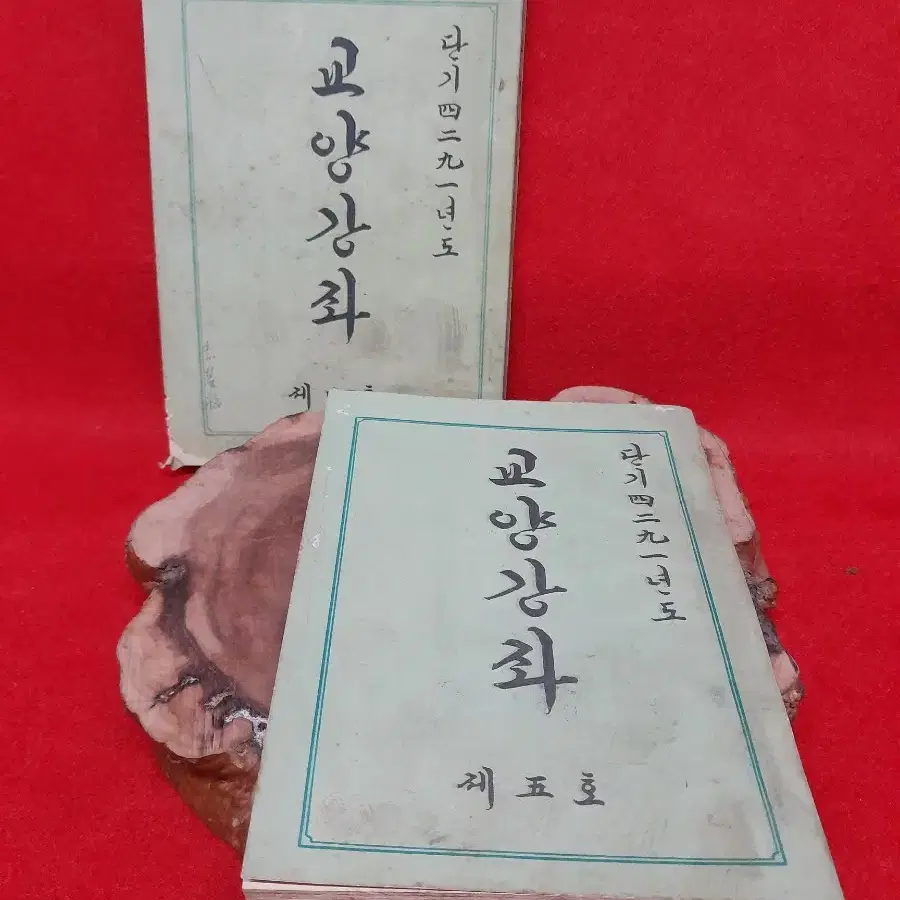 단기四二九一년도
교양강좌
제
단기四二九一년도
교양강좌
제五호